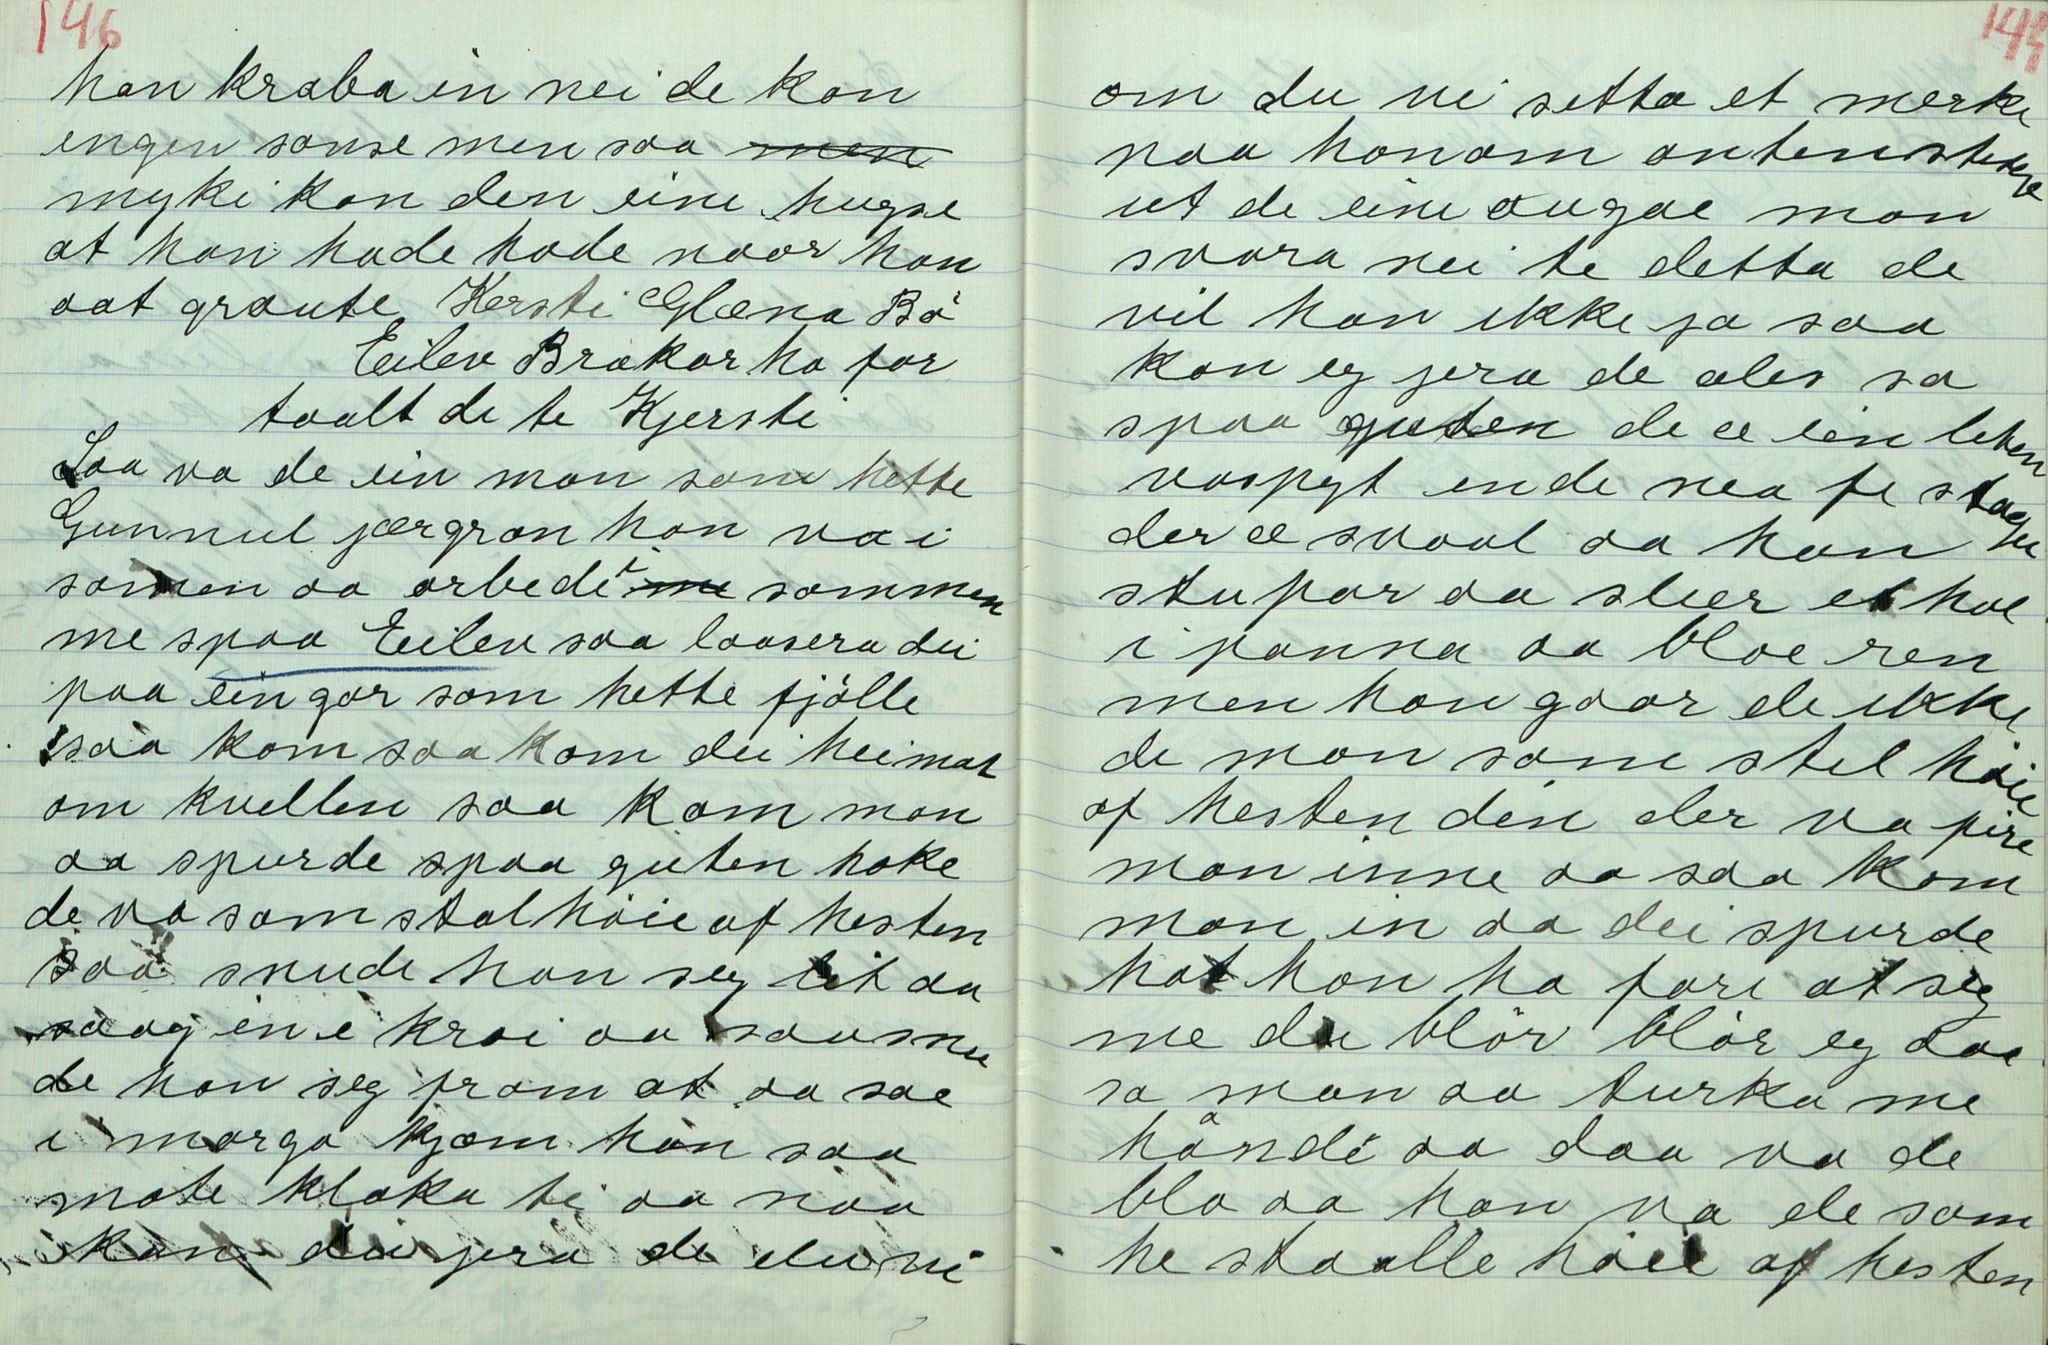 146
han kraba in nei de kan
engen sanse men saa men
myki kan den eine hugse
at han hade hode naar han
aat graute Kersti Glæna Bö
Eilev Brokar ha for
taalt de te Kjersti
Saa va de ein man som hette
Gunnul jærgran han va i
samen aa arbedet me sammen
me spaa Eilev saa laasera dei
paa ein gar som hette fjölle
saa kom saa kom dei heimat
om kvellen saa kom man
aa spurde spaa guten hoke
de va som stal höie af hesten
saa snude han seg lit aa
saag in i kroi aa saa snu
de han seg fram at aa sae
i morgo kjæm han saa
mate klaka ti aa naa
kan du jera de du vi
om du vi setta et merke
paa honom anten stikke
ut de eine augae man
svara nei te detta de
vil han ikke ja saa
kan eg jera de ales sa
spaa guten de æ ein liten
vaspyt ende nea fe
der æ svaal aa han
stupar aa sleer et hol
i panna aa bloe ren
men han gaar de ikke
de man som stel höie
af hesten din der va fire
man inne aa saa kom
man in aa dei spurde
hat han ha fare at seg
me du blör blör eg daa
sa man aa turka me
håndi aa daa va de
blo aa han va de som
he staalle höie af hesten